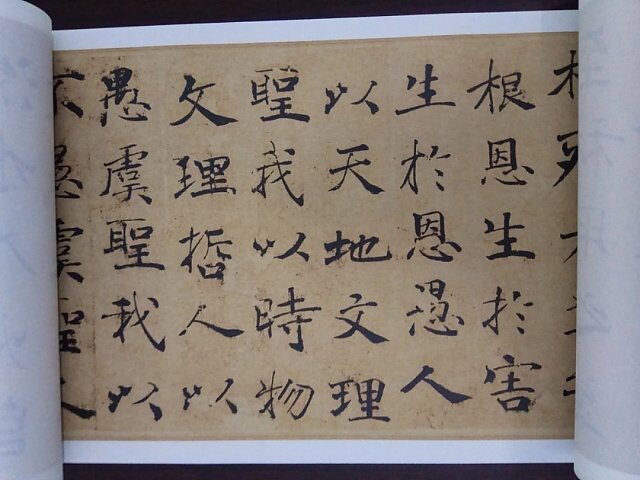 根死
根恩生於害
生於恩愚人
以天地文理
聖我以時物
文理哲人以
愚虞聖我以
不愚虞聖